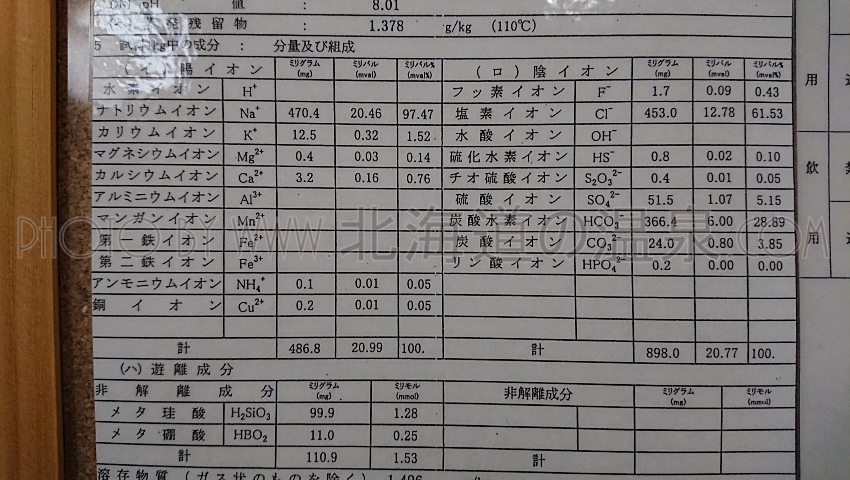 (ホ) pH 値 8.01
蒸発残留物 : 1.378 g/kg (110℃)
5 試料1kg中の成分 : 分量及び組成
(イ) 陽イオン ミリグラム (mg) ミリバル (mval) ミリバル% (mval%) (ロ) 陰イオン ミリグラム (mg) ミリバル (mval) ミリバル% (mval%)
水素イオン H⁺ フッ素イオン F⁻ 1.7 0.09 0.43
ナトリウムイオン Na⁺ 470.4 20.46 97.47 塩素イオン Cl⁻ 453.0 12.78 61.53
カリウムイオン K⁺ 12.5 0.32 1.52 水酸イオン OH⁻
マグネシウムイオン Mg²⁺ 0.4 0.03 0.14 硫化水素イオン HS⁻ 0.8 0.02 0.10
カルシウムイオン Ca²⁺ 3.2 0.16 0.76 チオ硫酸イオン S₂O₃²⁻ 0.4 0.01 0.05
アルミニウムイオン Al³⁺ 硫酸イオン SO₄²⁻ 51.5 1.07 5.15
マンガンイオン Mn²⁺ 炭酸水素イオン HCO₃⁻ 366.4 6.00 28.89
第一鉄イオン Fe²⁺ 炭酸イオン CO₃²⁻ 24.0 0.80 3.85
第二鉄イオン Fe³⁺ リン酸イオン HPO₄²⁻ 0.2 0.00 0.00
アンモニウムイオン NH₄⁺ 0.1 0.01 0.05
銅イオン Cu²⁺ 0.2 0.01 0.05
計 486.8 20.99 100. 計 898.0 20.77 100.
(ハ) 遊離成分
非解離成分 ミリグラム (mg) ミリモル (mmol) 非解離成分 ミリグラム (mg) ミリモル (mmol)
メタ珪酸 H₂SiO₃ 99.9 1.28
メタ硼酸 HBO₂ 11.0 0.25
計 110.9 1.53 計
溶存物質 (ガス状のものを除く)
用
飲
用
PHOTO BY WWW.北海道の温泉.COM